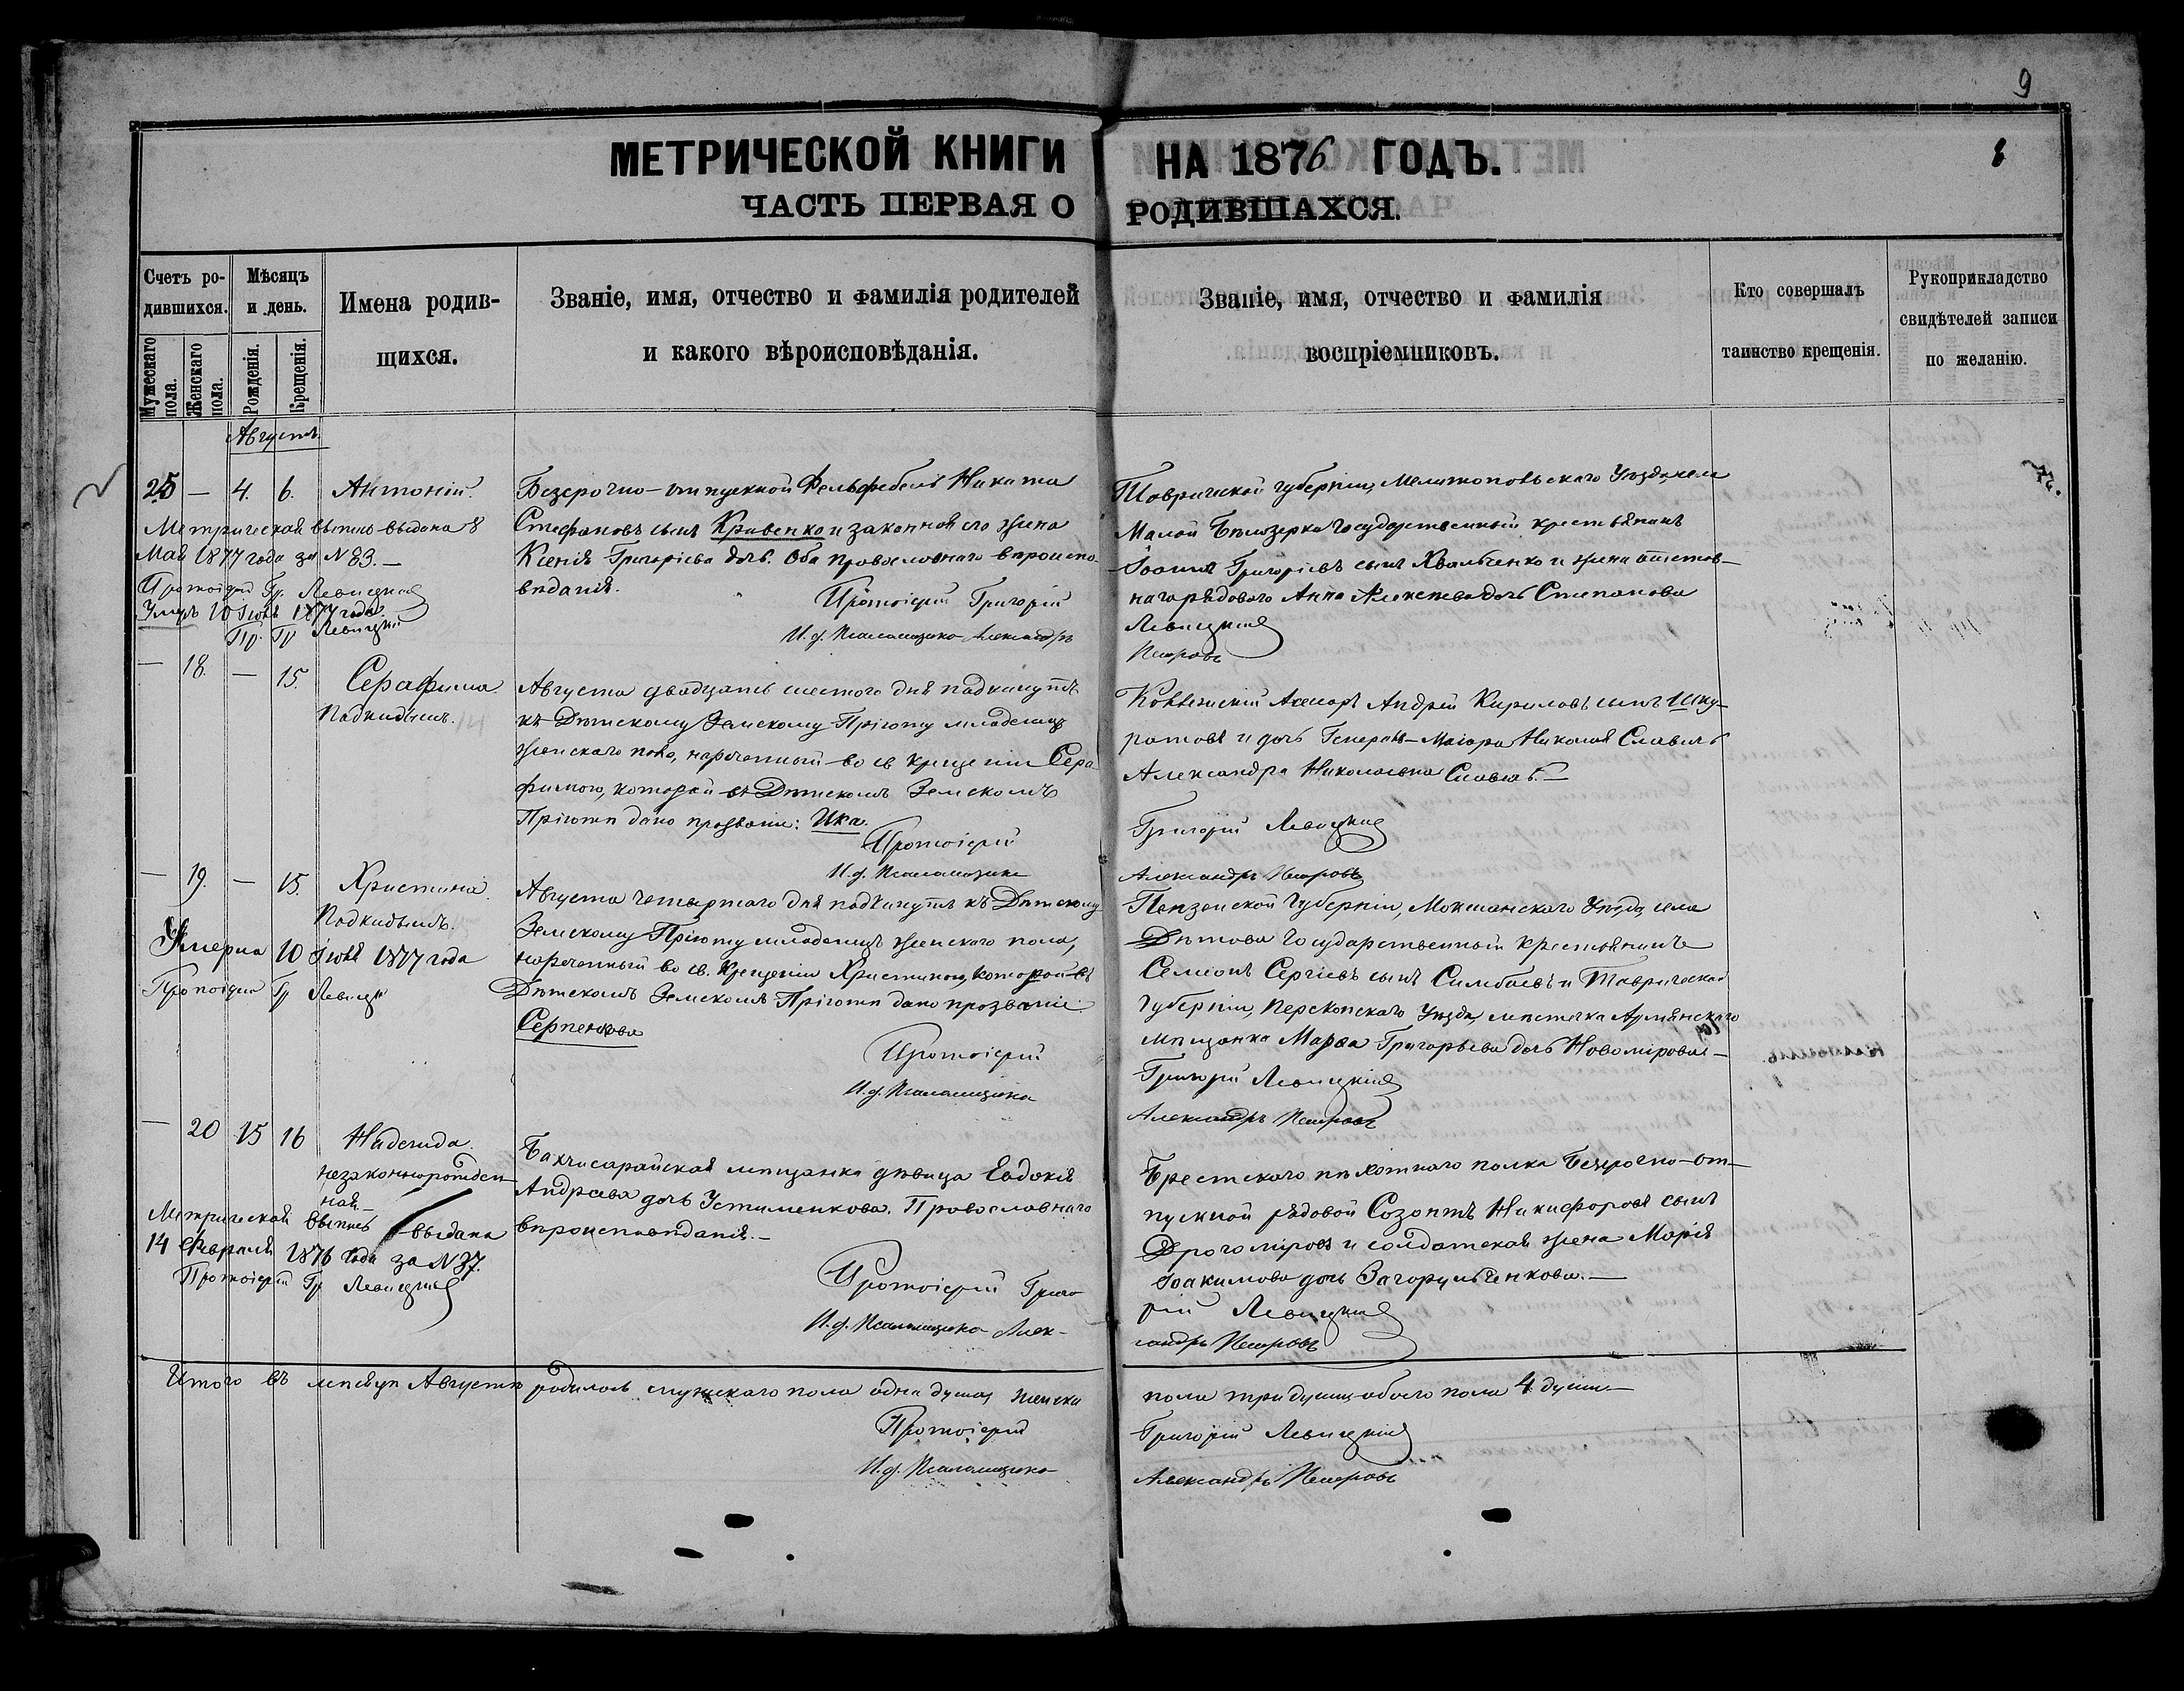 9
8
МЕТРИЧЕСКОЙ КНИГИ НА 1876 ГОДЪ.
ЧАСТЬ ПЕРВАЯ О РОДИВШАХСЯ.
Счетъ ро-
дившихся.
Мужескаго пола.
Женскаго пола.
Мѣсяцъ
и день.
Рожденія.
Крещенія.
Имена родив-
щихся.
Званіе, имя, отчество и фамилія родителей
и какого вѣроисповѣданія.
Званіе, имя, отчество и фамилія
воспріемниковъ.
Кто совершалъ
таинство крещенія.
Рукоприкладство
свидѣтелей записи
по желанію.
Августъ
25 — 4. 6. Антоній.
Метрическая выпись выдана 8
Мая 1877 года за № 83.—
Протоіерей Гр. Левицкій
Умеръ 10 Іюня 1877 года.
Пр. Гр Левицкій
Безсрочно-отпускной Фельдфебель Никита
Стефановъ сынъ Кравенко и законная его жена
Ксенія Григорієва дочь. Оба православнаго вѣроиспо-
вѣданія.
Протоіерей Григорій
И. д. Псаломщика Александръ
Таврической губерніи, Мелитопольскаго Уѣзда, села
Малой Бѣлозерки Государственный крестьянинъ
Іоаннъ Григоріевъ сынъ Хвальченко и жена отстав-
наго рядового Анна Алексѣева дочь Степанова
Левицкій
Петровъ
— 18. — 15. Серафима.
Подкидышъ.
Августа двадцать шестого дня подкинутъ
къ Дѣтскому Земскому Пріюту младенецъ
женскаго пола, нареченный во св крещеніи Сера-
фимою, которой въ Дѣтскомъ Земскомъ
Пріютѣ дано прозваніе: Ика.
Протоіерей
И. д. Псаломщика
Андрей Кириловъ сынъ Шку-
ратовъ и дочь Генералъ-Маіора Николая Славичъ
Александра Николаевна Славичъ.—
Григорій Левицкій
Александръ Петровъ
— 19. — 15. Христина.
Подкидышъ.
Умерла 10 Іюня 1877 года
Протоіерей Гр Левицкій
Августа четвертаго дня подкинутъ къ Дѣтскому
Земскому Пріюту младенецъ женскаго пола,
нареченный во св. Крещеніи Христиною, которой въ
Дѣтскомъ Земскомъ Пріютѣ дано прозваніе
Серпенкова
Протоіерей
И. д. Псаломщика
Пензенской Губерніи, Мокшанскаго Уѣзда, села
Дѣтова Государственный крестьянинъ
Семіонъ Сергіевъ сынъ Симбаевъ и Таврической
Губерніи, Перекопскаго Уѣзда, мѣстечка Армянскаго
мѣщанка Марѳа Григорьева дочь Новомірова—
Григорій Левицкій
Александръ Петровъ
— 20 15 16 Надежда.
незаконнорожден-
ная.—
Метрической выпись выдана
14 Февраля 1876 года за № 37.
Протоіерей Гр Левицкій
Бахчисарайская мѣщанка дѣвица Евдокія
Андреева дочь Устименкова. Православнаго
вѣроисповѣданія.—
Протоіерей Григо
И. д. Псаломщика Алек-
Брестскаго пѣхотнаго полка безсрочно-от-
пускной рядовой Созонтъ Никифоровъ сынъ
Дрогоміровъ и солдатская жена Марія
Іоакимова дочь Загорульченкова.—
рій Левицкій
сандръ Петровъ
Итого въ мѣсяцѣ Августѣ родилось мужскаго пола одна душа, женска
пола три души, обоего пола 4 души—
Протоіерей
Григорій Левицкій
И. д. Псаломщика
Александръ Петровъ